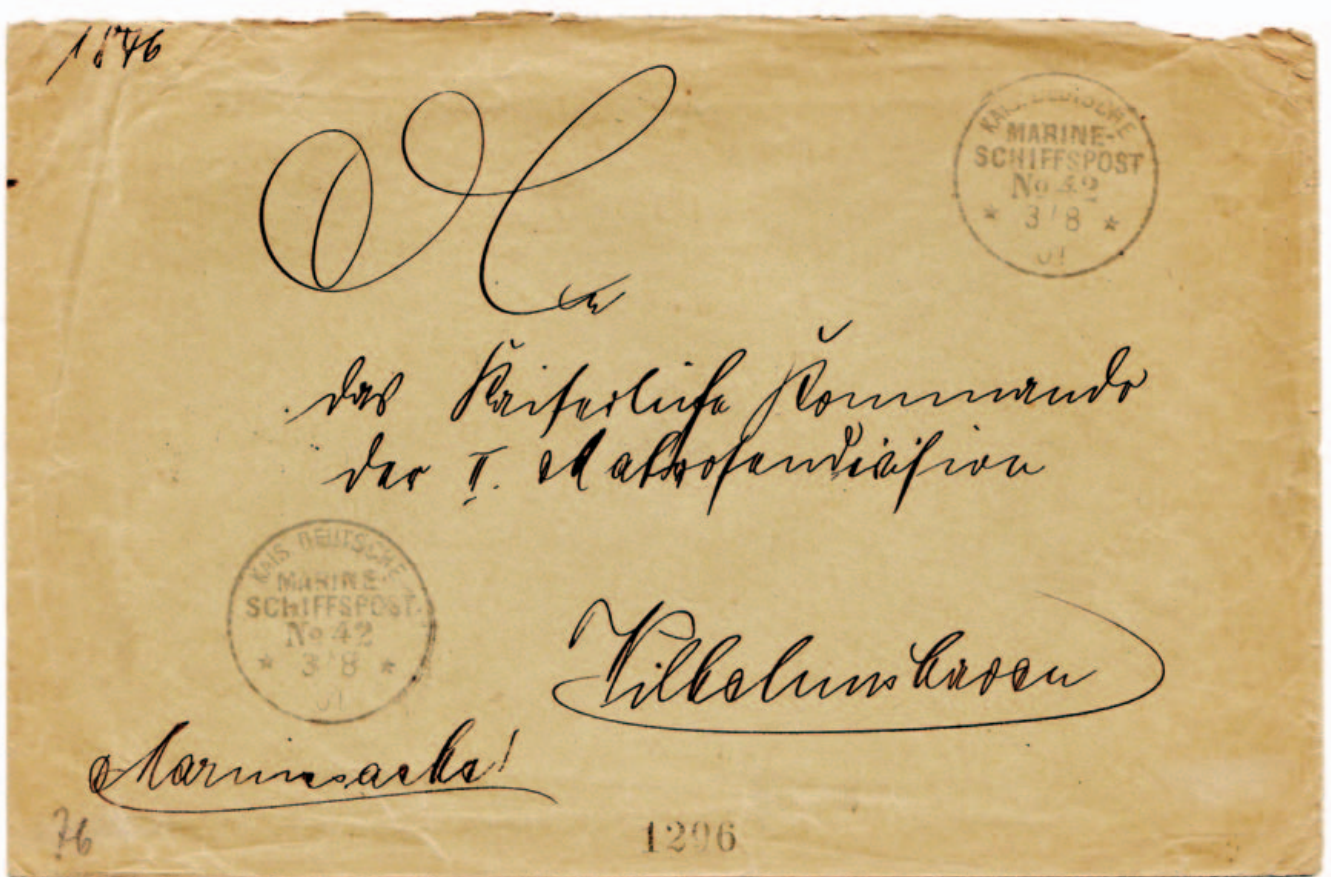 1876
KAIS. DEUTSCHE
MARINE-
SCHIFFSPOST
No 42
* 3/8 *
01
An
das Kaiserliche Kommando
der II. Matrosendivision
KAIS. DEUTSCHE
MARINE-
SCHIFFSPOST
No 42
* 3/8 *
01
Wilhelmshaven
Marinesache!
76
1296